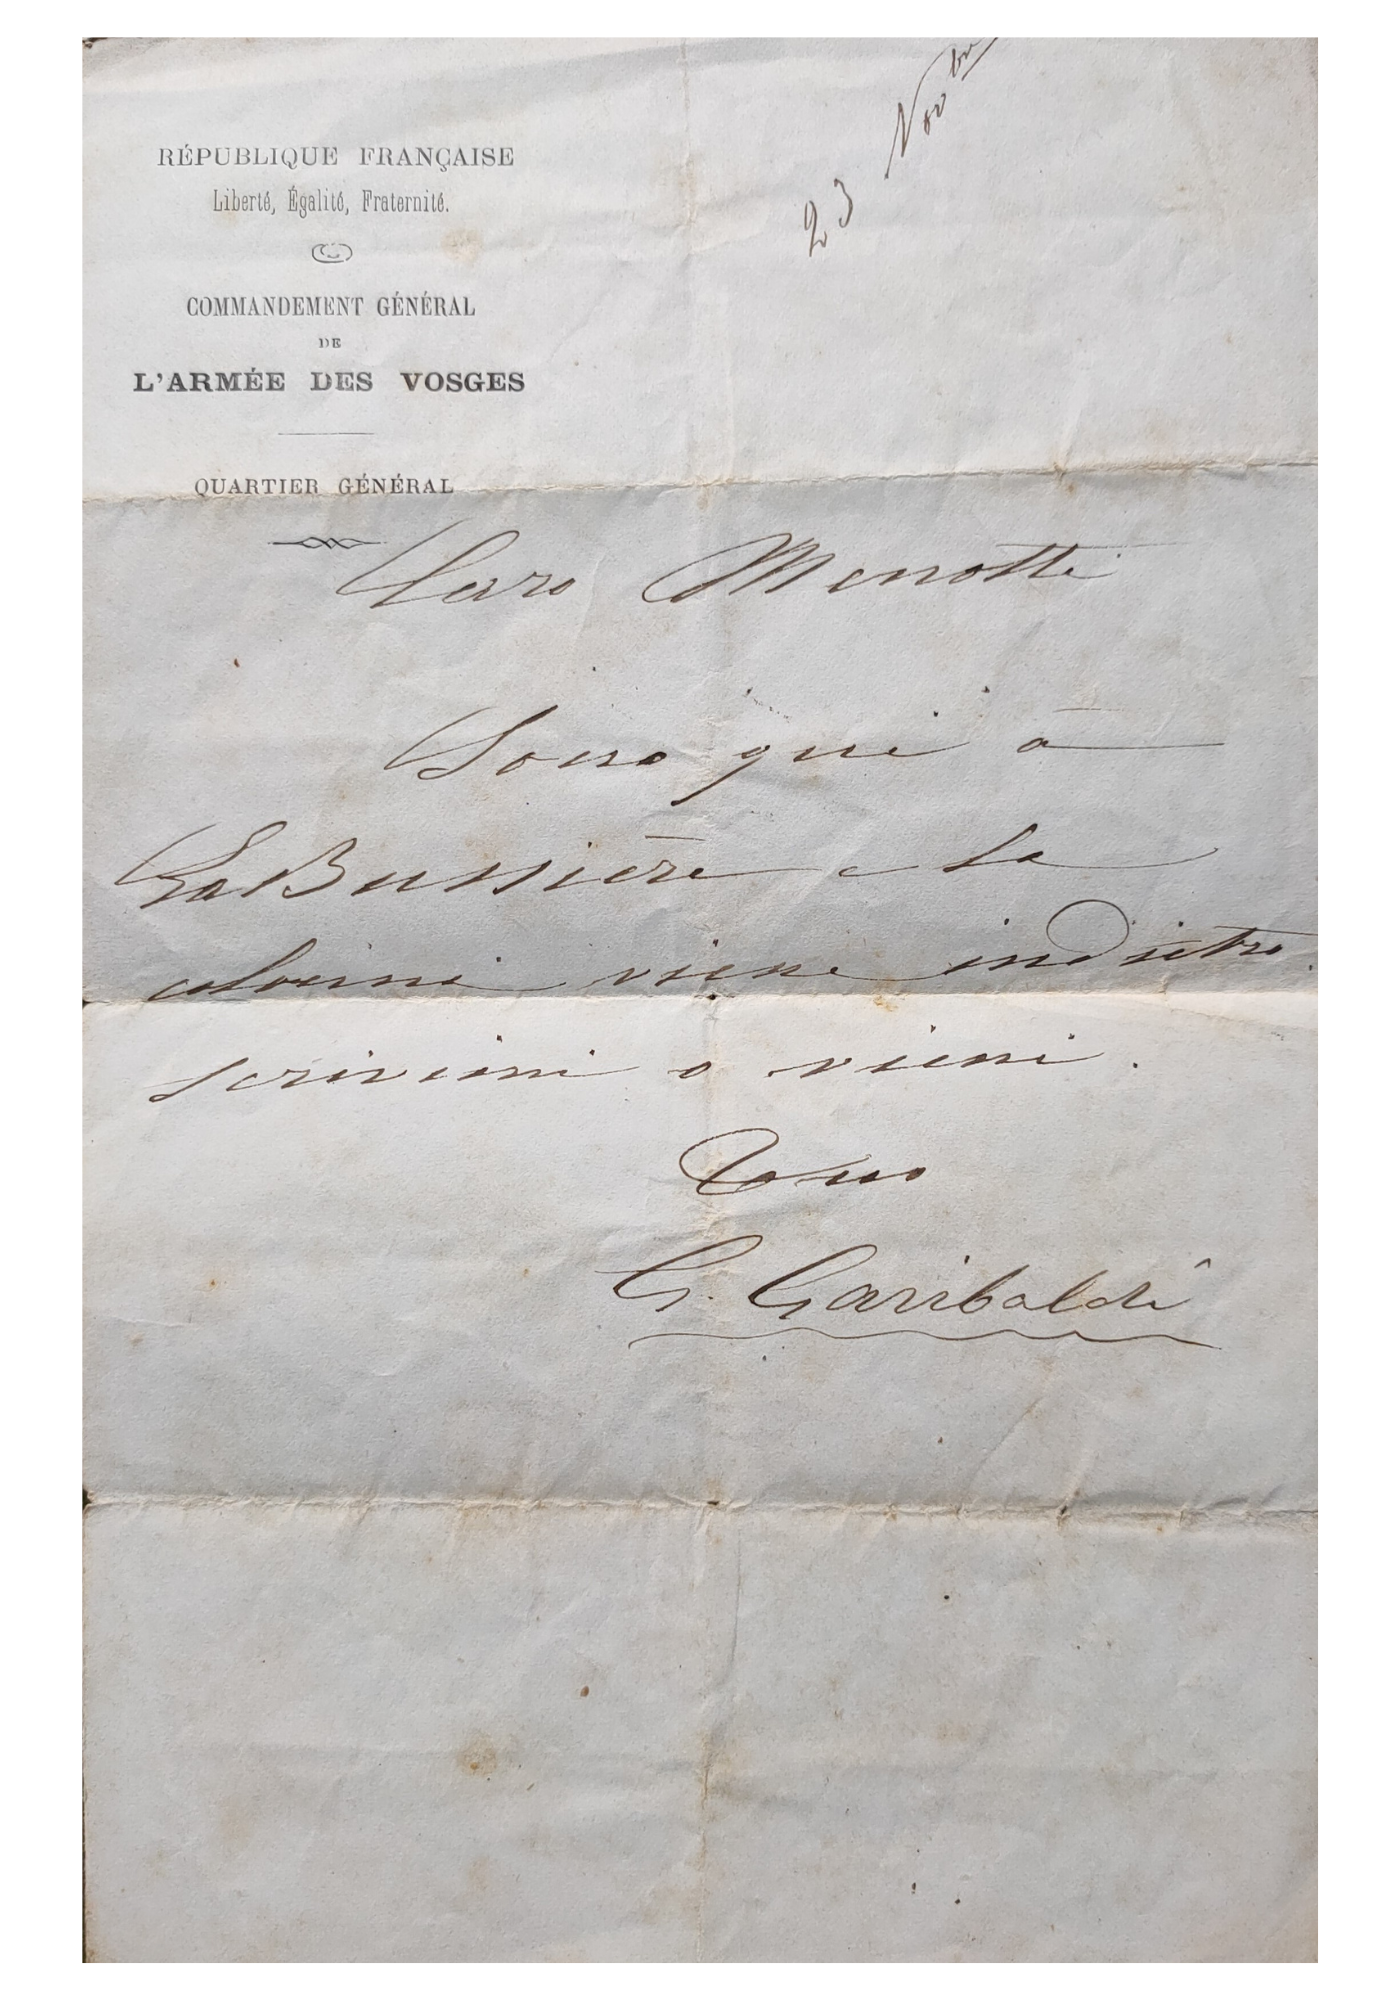 23 Nov bre
RÉPUBLIQUE FRANÇAISE
Liberté, Égalité, Fraternité.
COMMANDEMENT GÉNÉRAL
DE
L'ARMÉE DES VOSGES
QUARTIER GÉNÉRAL
Caro Menotti
Sono qui à
La Bussière e la
colonna viene indietro.
scrivimi o vieni.
Tuo
G. Garibaldi